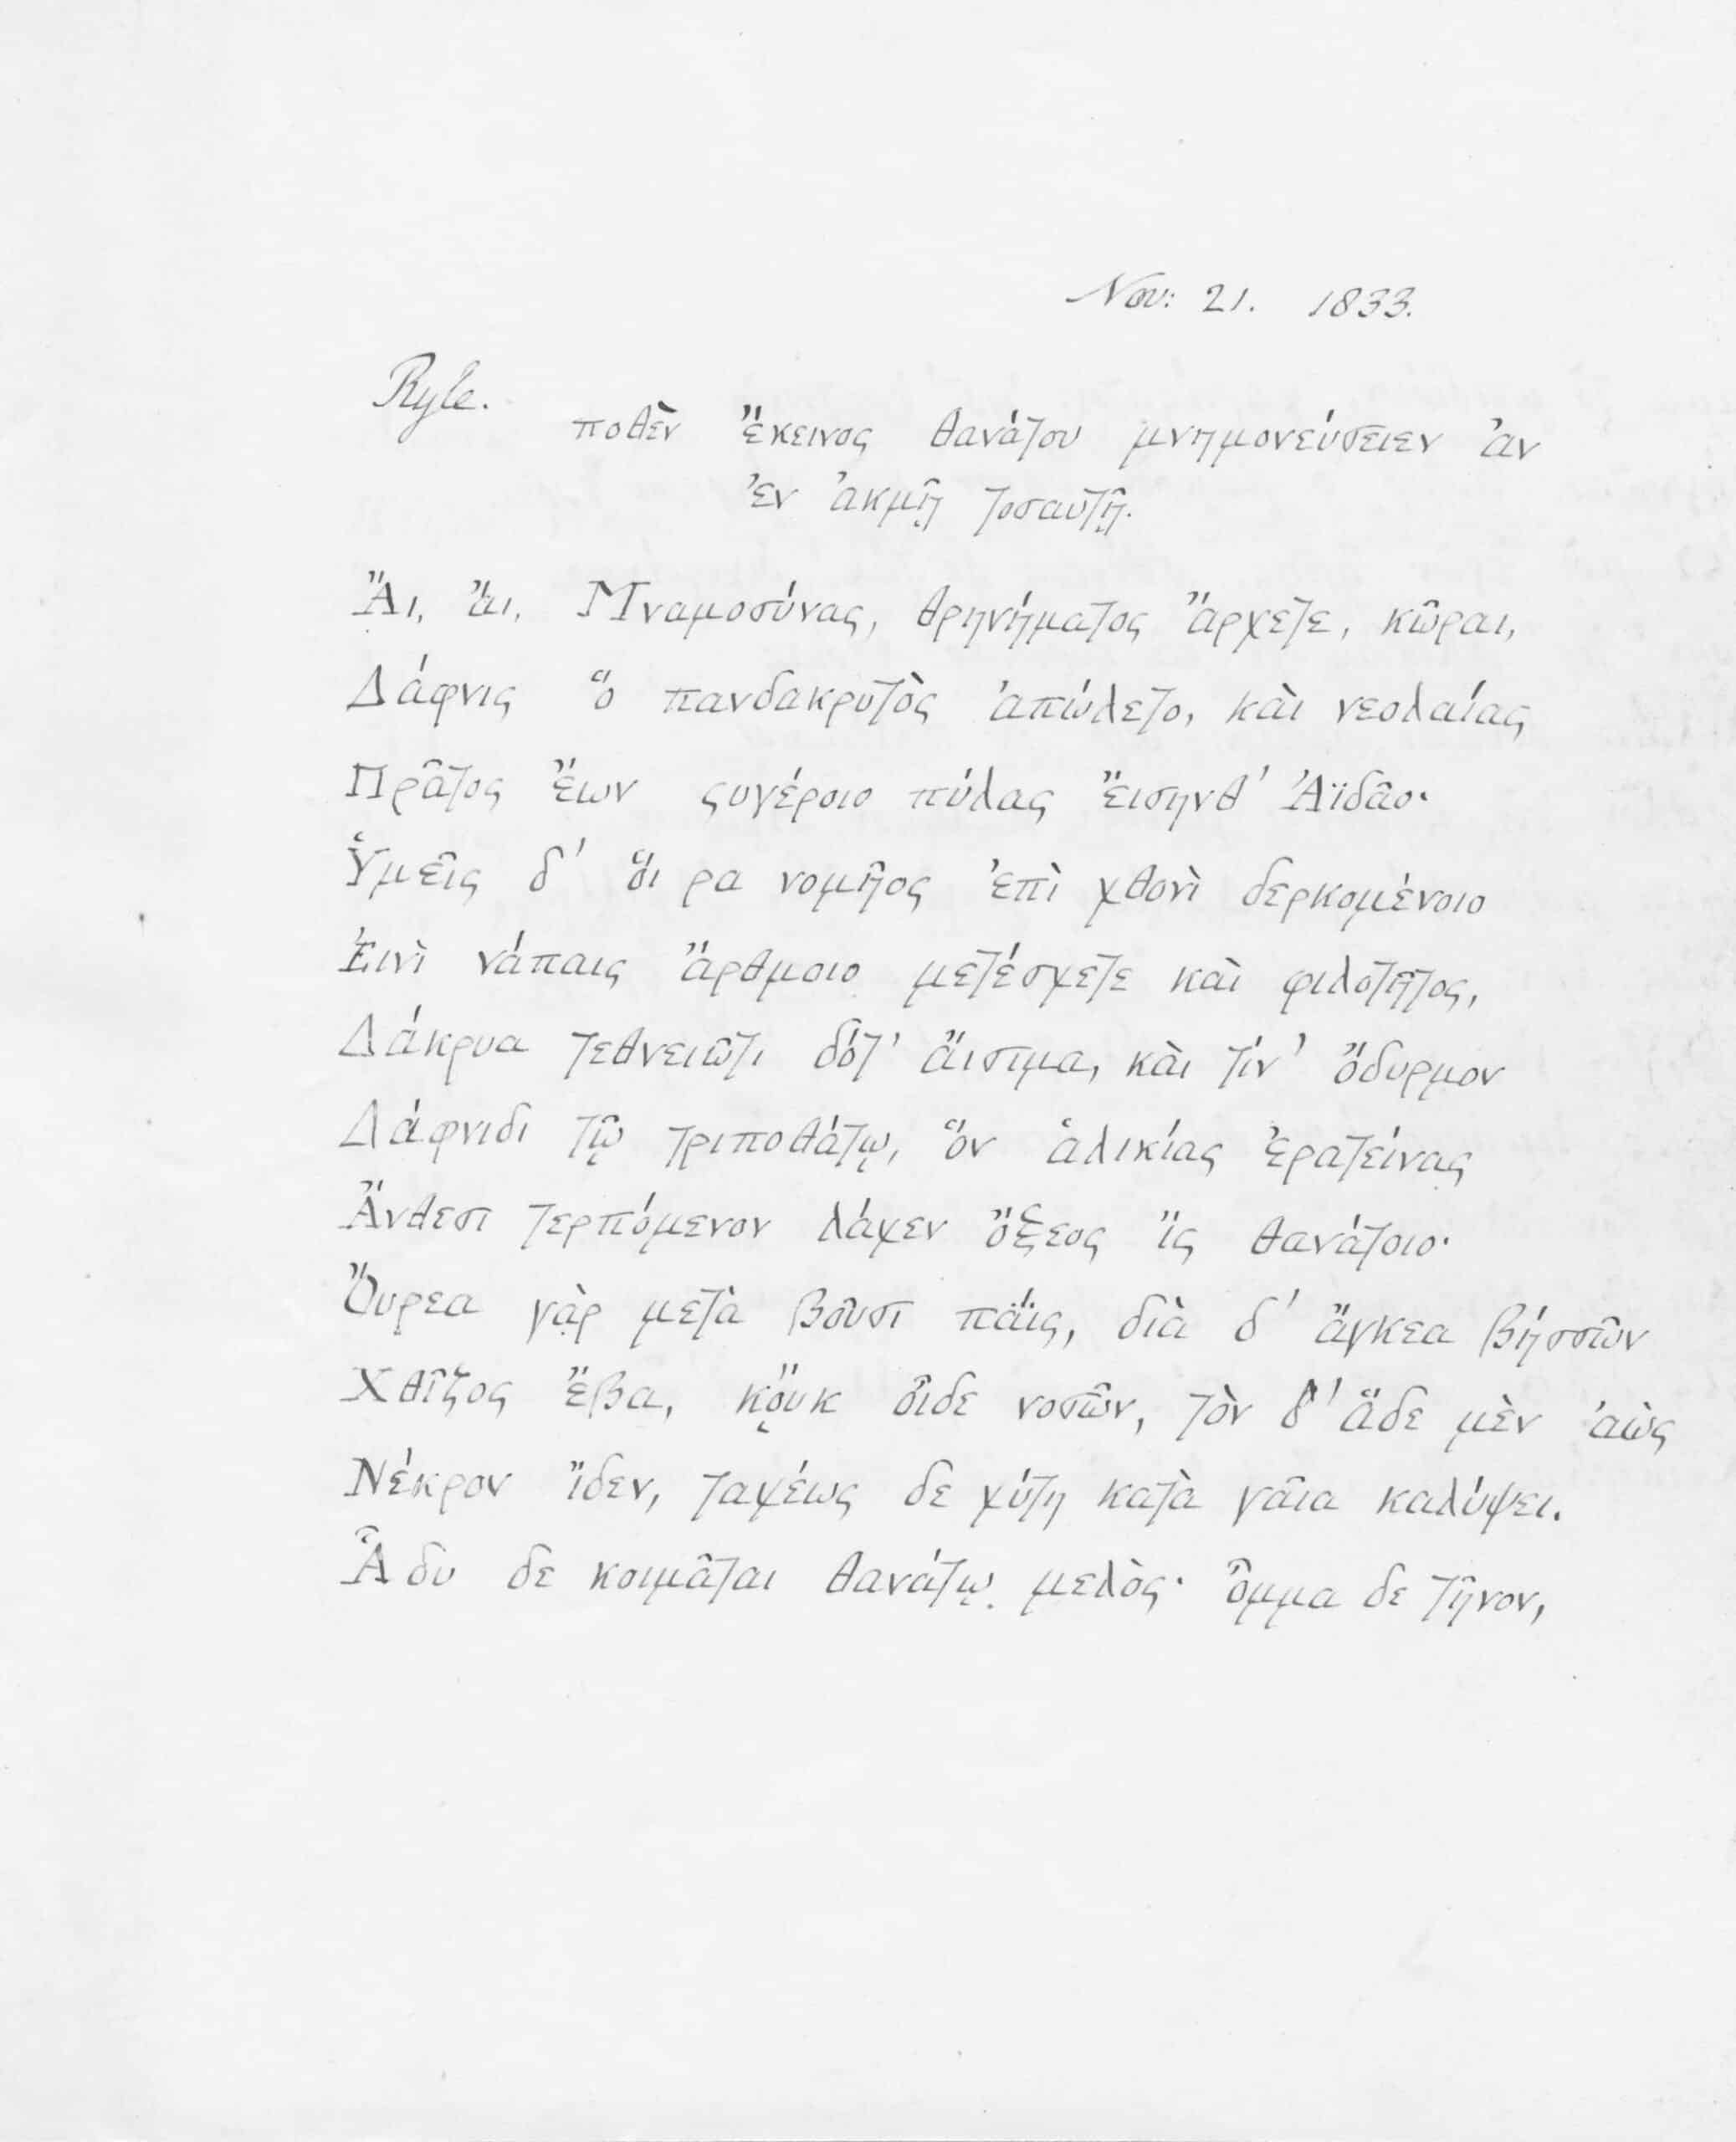 Nov: 21. 1833.
Ryle.
ποθὲν ἔκεινος θανάτου μνημονεύσειεν ἀν
ἐν ἀκμῇ τοσαυτῇ.
Ἄι, ἄι, Μναμοσύνας, θρηνήματος ἄρχετε, κῶραι,
Δάφνις ὅ πανδακρυτὸς ἀπώλετο, κὰι νεολαίας
Πρᾶτος ἔων ςυγέροιο πύλας ἔισηνθ' Ἀϊδᾶο·
Ὑμεῖς δ' ὅι ρα νομῆος ἐπὶ χθονὶ δερκομένοιο
Ἐινὶ νάπαις ἄρθμοιο μετέσχετε κὰι φιλοτῆτος,
Δάκρυα τεθνειῶτι δότ' ἄισιμα, κὰι τίν' ὄδυρμον
Δάφνιδι τῷ τριποθάτῳ, ὅν ἁλικίας ἐρατείνας
Ἄνθεσι τερπόμενον λάχεν ὄξεος ἴς θανάτοιο·
Ὄυρεα γὰρ μετὰ βοῦσι πάϊς, διὰ δ' ἄγκεα βήσσῶν
Χθῖζος ἔβα, κὄυκ οἶδε νοσῶν, τὸν δ' ἅδε μὲν ἀὼς
Νέκρον ἴδεν, ταχέως δε χύτη κατὰ γᾶια καλύψει.
Ἆδυ δε κοιμᾶται θανάτῳ μελὸς· ὄμμα δε τῆνον,